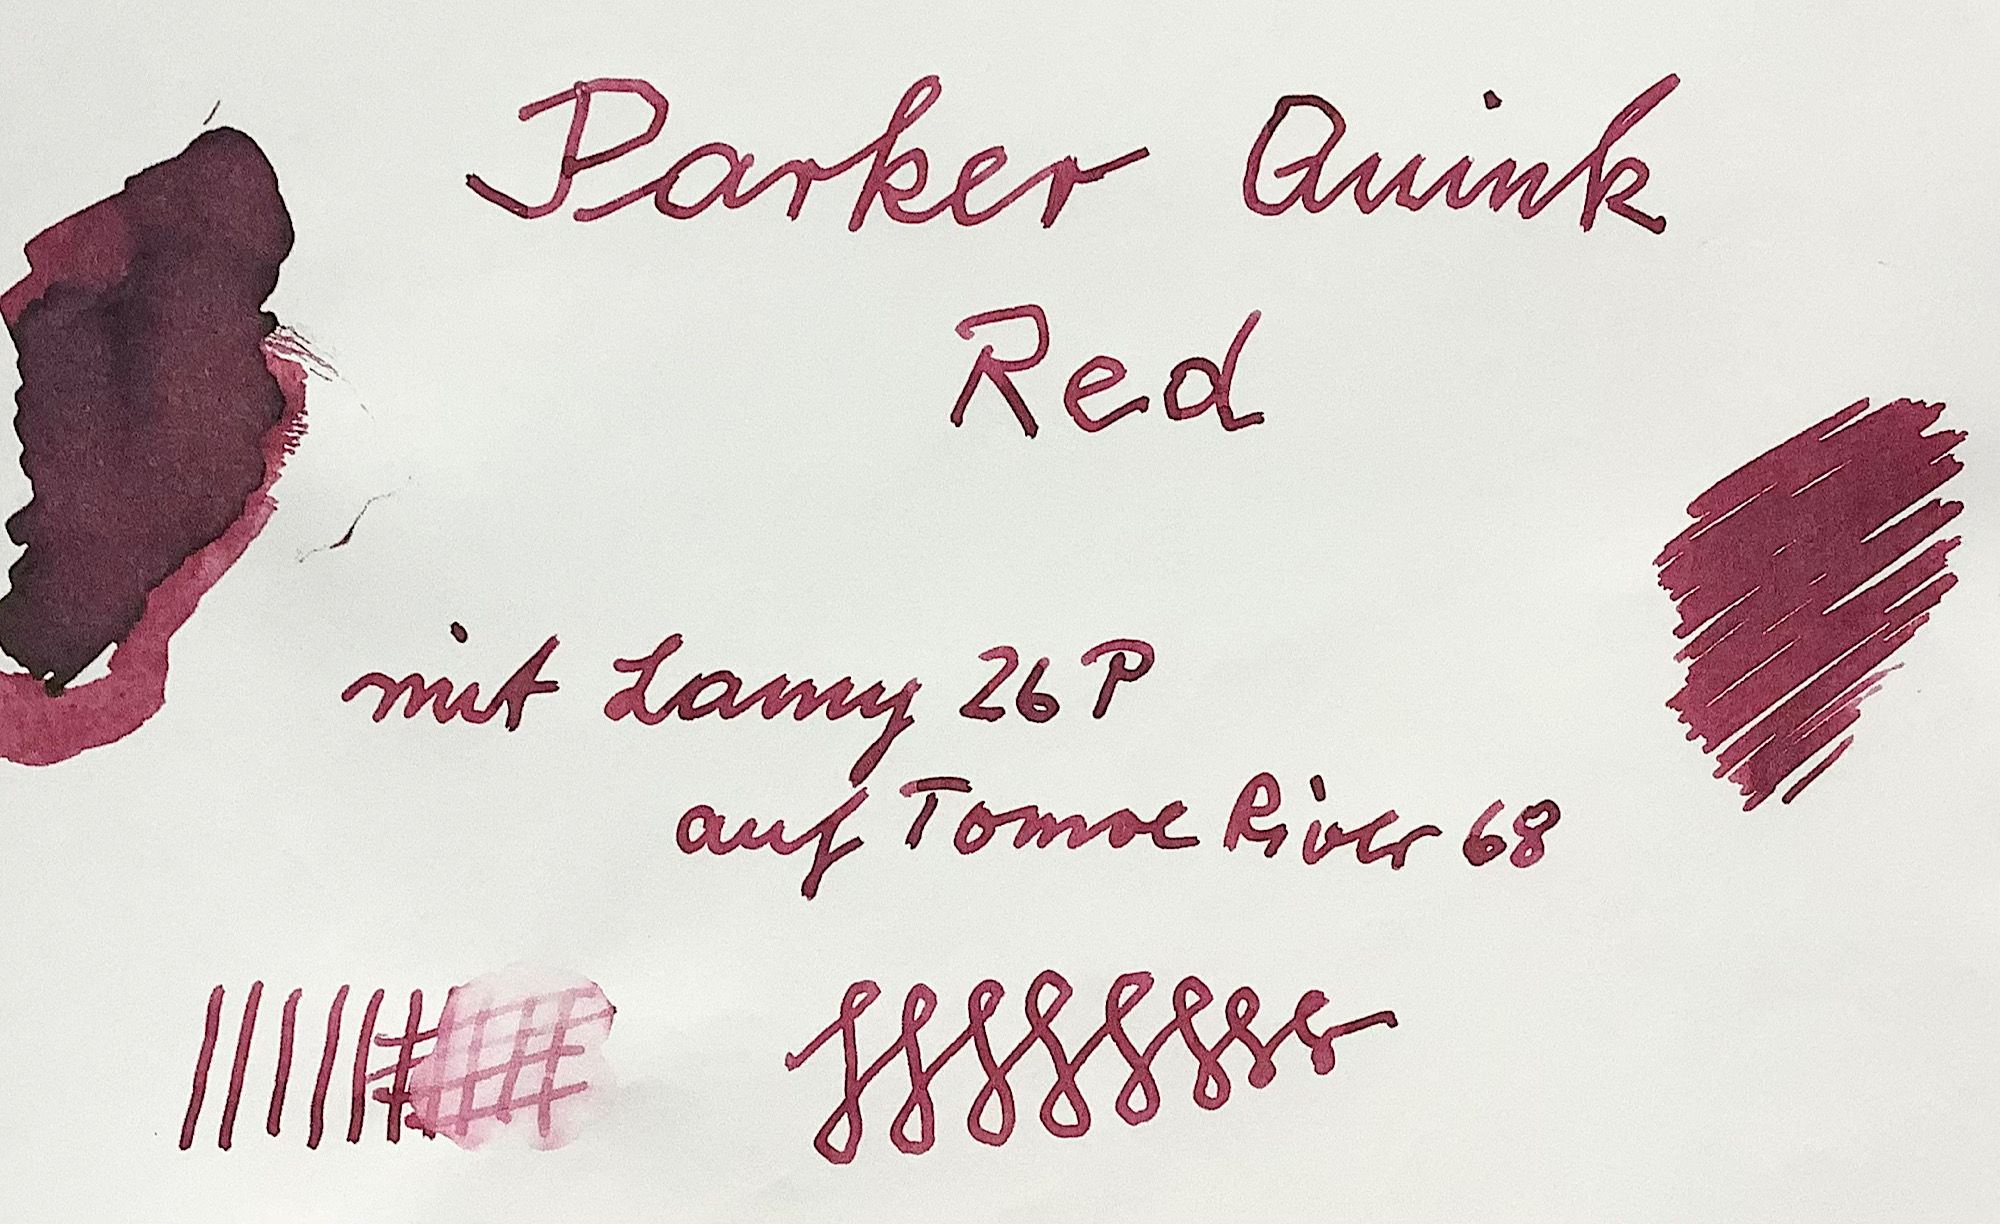 Parker Quink
Red
mit Lamy 26 P
auf Tomoe River 68